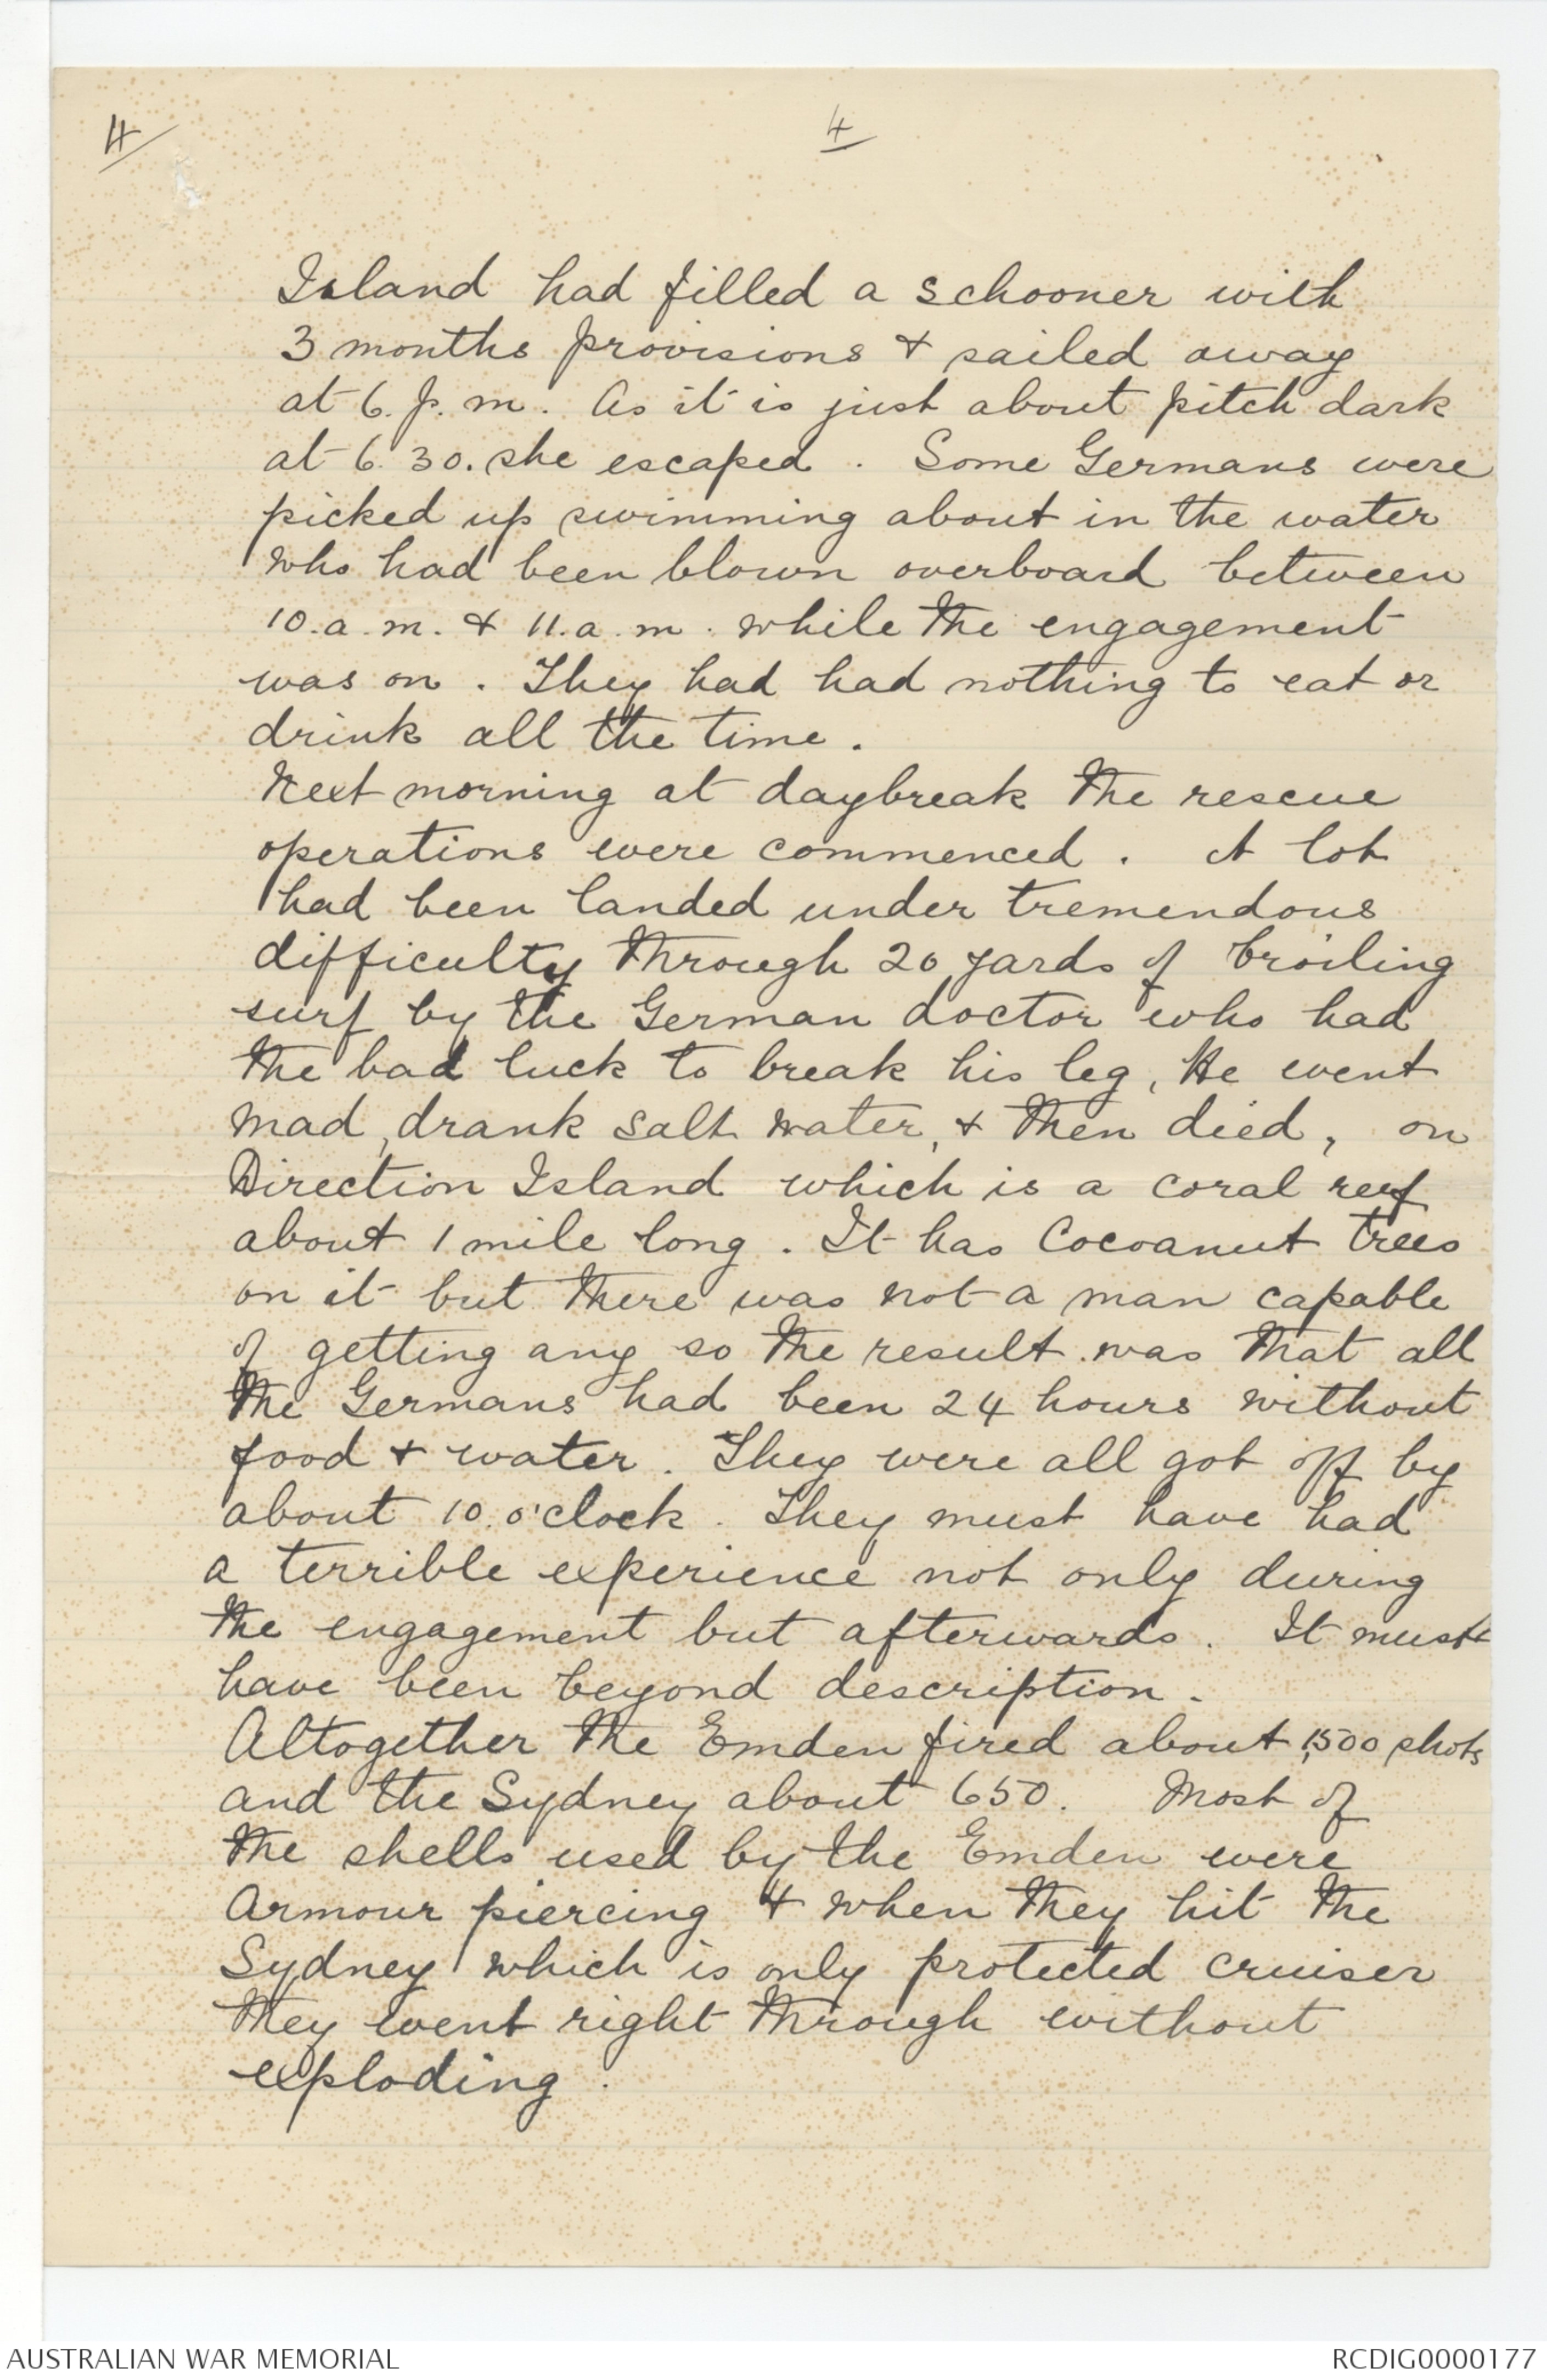 4
4
Island had filled a schooner with
3 months provisions & sailed away
at 6. p. m. As it is just about pitch dark
at 6. 30. she escaped. Some Germans were
picked up swimming about in the water
who had been blown overboard between
10. a. m. & 11. a. m. while the engagement
was on. They had had nothing to eat or
drink all the time.
Next morning at daybreak the rescue
operations were commenced. A lot
had been landed under tremendous
difficulty through 20 yards of broiling
surf by the German doctor who had
the bad luck to break his leg, He went
mad, drank salt water, & then died, on
Direction Island which is a coral reef
about 1 mile long. It has Cocoanut trees
on it but there was not a man capable
of getting any so the result was that all
the Germans had been 24 hours without
food & water. They were all got off by
about 10. o'clock. They must have had
a terrible experience not only during
the engagement but afterwards. It must
have been beyond description.
Altogether the Emden fired about 1,500 shots
and the Sydney about 650. Most of
the shells used by the Emden were
armour piercing & when they hit the
Sydney which is only protected cruiser
they went right through without
exploding.
AUSTRALIAN WAR MEMORIAL
RCDIG0000177